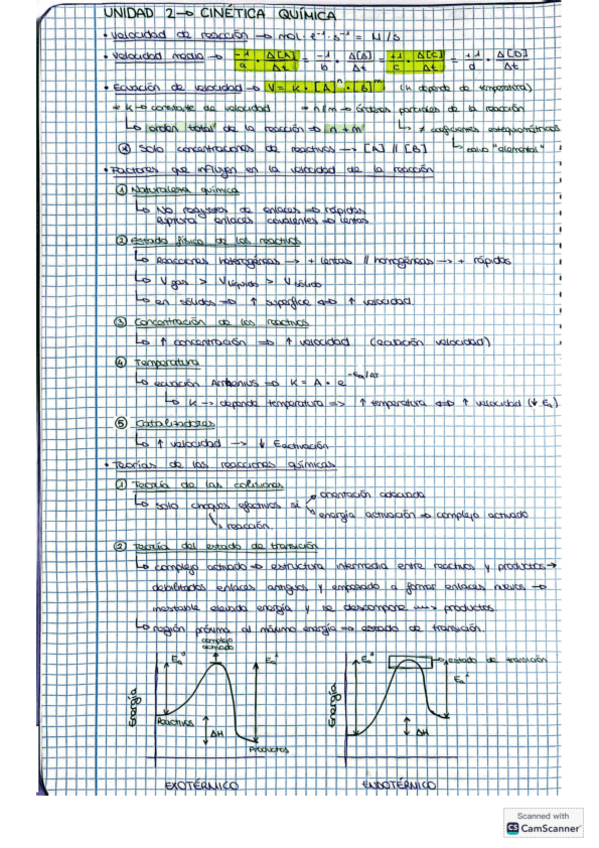 UNIDAD 2 → CINÉTICA QUÍMICA
• Velocidad de reacción → mol · l⁻¹ · s⁻¹ = M/s
• Velocidad media → -1/a · Δ[A]/Δt = -1/b · Δ[B]/Δt = +1/c · Δ[C]/Δt = +1/d · Δ[D]/Δt
• Ecuación de velocidad → V = K · [A]ⁿ · [B]ᵐ (K depende de temperatura)
* K → constante de velocidad * n/m → órdenes parciales de la reacción
↳ orden total de la reacción ⇒ n+m ↳ ≠ coeficientes estequiométricos
* Solo concentraciones de reactivos → [A] // [B] ↳ salvo "elemental"
• Factores que influyen en la velocidad de la reacción
① Naturaleza química
↳ No requiera de enlaces → rápidas
ruptura enlaces covalentes → lentas
② Estado físico de los reactivos
↳ Reacciones heterogéneas → + lentas // homogéneas → + rápidas
↳ V gas > V líquido > V sólido
↳ en sólidos → ↑ superficie ⇔ ↑ velocidad
③ Concentración de los reactivos
↳ ↑ concentración ⇒ ↑ velocidad (ecuación velocidad)
④ Temperatura
↳ ecuación Arrhenius → K = A · e^-Ea/RT
↳ K → depende temperatura ⇒ ↑ temperatura ⇔ ↑ velocidad (↓ Ea)
⑤ Catalizadores
↳ ↑ velocidad → ↓ Eactivación
• Teorías de las reacciones químicas
① Teoría de las colisiones
orientación adecuada
↳ solo choques efectivos si
energía activación → complejo activado
↳ reacción
② Teoría del estado de transición
↳ complejo activado → estructura intermedia entre reactivos y productos →
debilitados enlaces antiguos y empezado a formar enlaces nuevos →
inestable elevada energía y se descompone → productos
↳ región próxima al máximo energía → estado de transición
complejo activado
Ea
Ea'
Energía
Reactivos
ΔH
Productos
EXOTÉRMICO
Ea
estado de transición
Ea'
Energía
ΔH
ENDOTÉRMICO
Scanned with
CS CamScanner